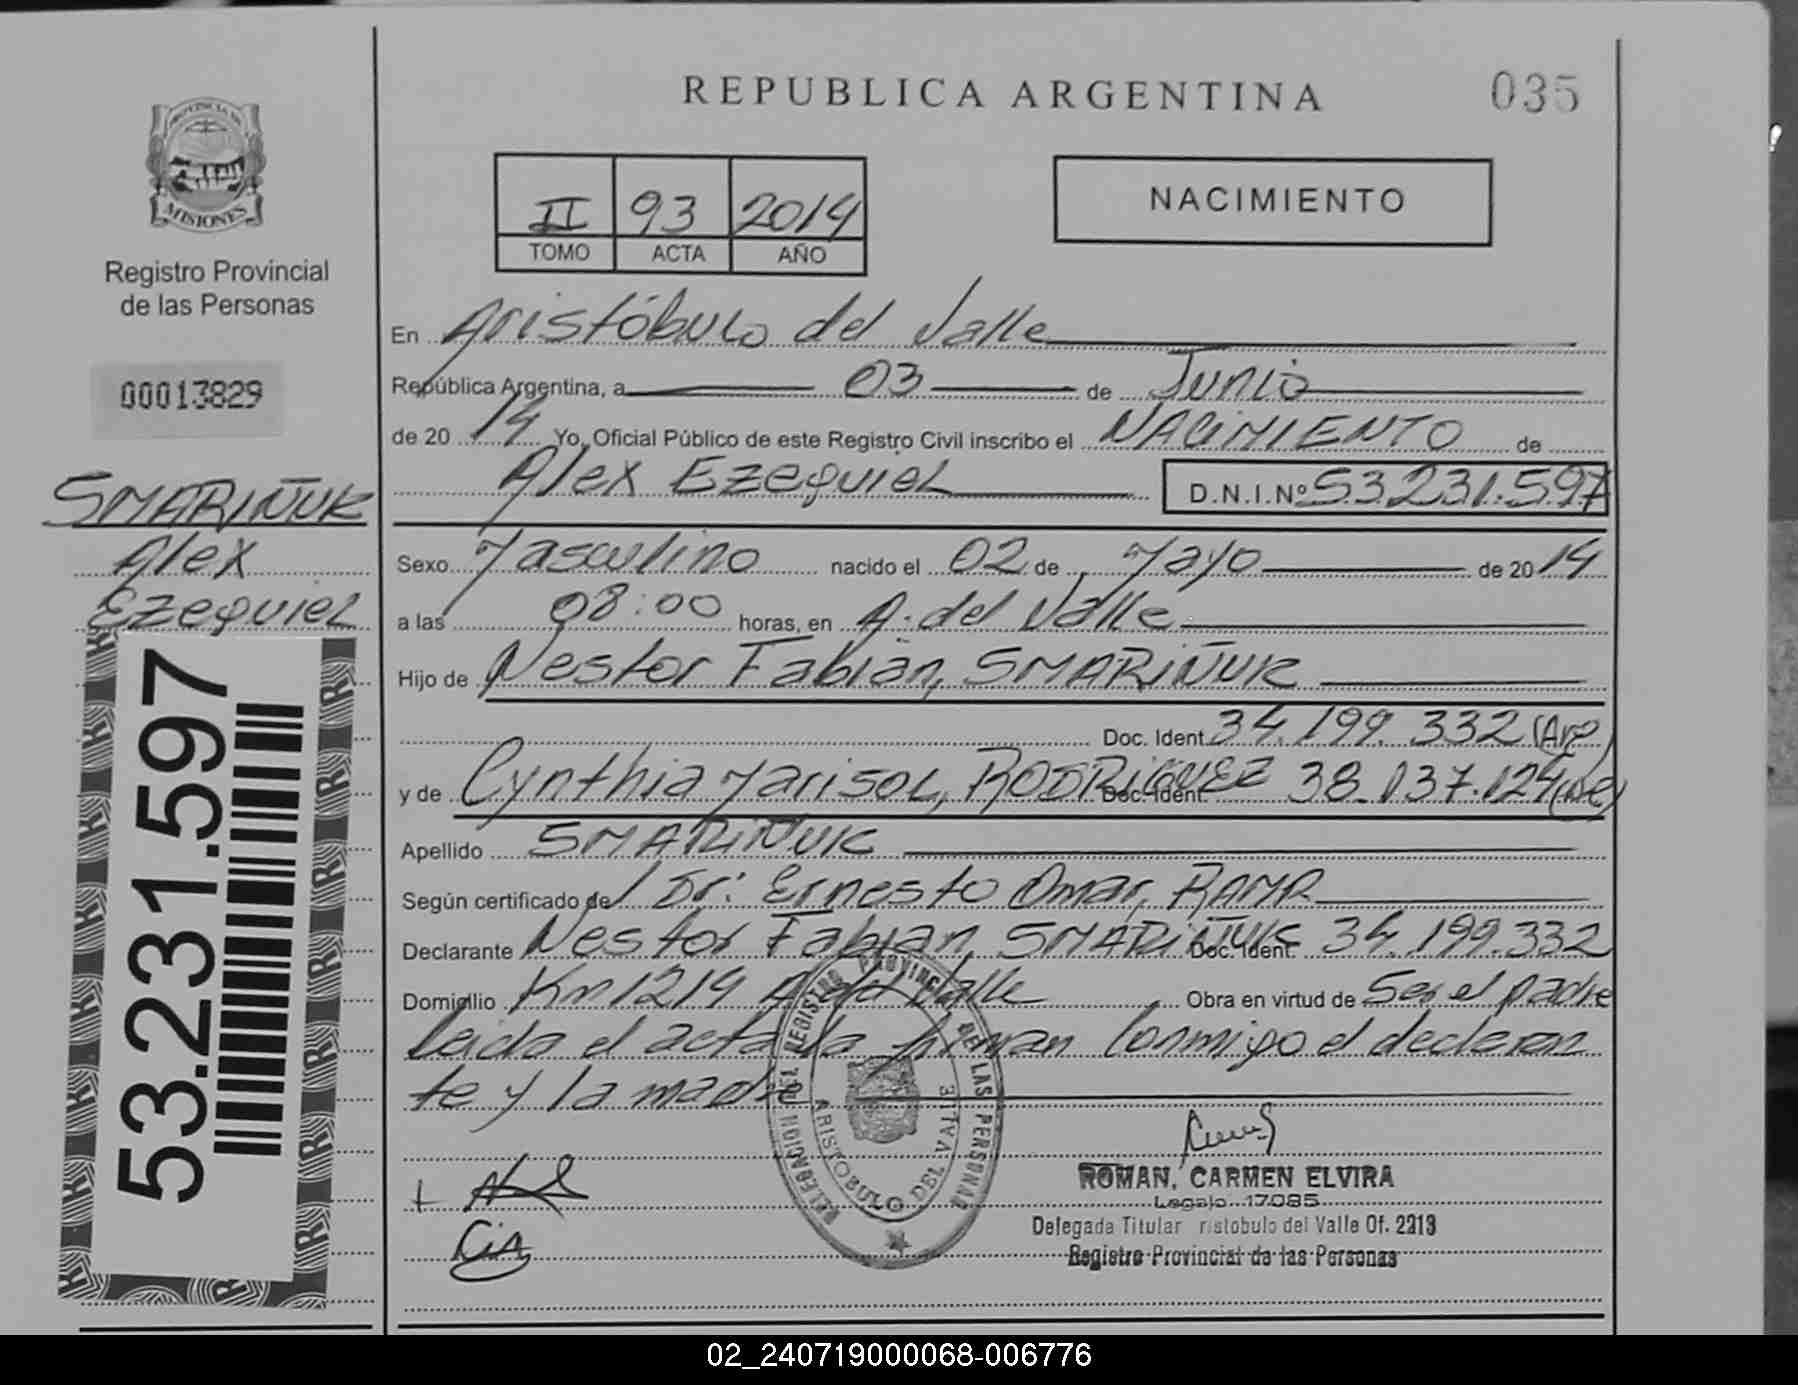 REPUBLICA ARGENTINA
035
PROVINCIA DE
MISIONES
Registro Provincial
de las Personas
00013829
SMARIÑUK
Alex
Ezequiel
53.231.597
II 93 2014
TOMO ACTA AÑO
NACIMIENTO
En Aristóbulo del Valle
República Argentina, a 03 de Junio
de 20 14 Yo, Oficial Público de este Registro Civil inscribo el NACIMIENTO de
Alex Ezequiel D.N.I.Nº 53.231.597
Sexo Masculino nacido el 02 de Mayo de 20 14
a las 08:00 horas, en A. del Valle
Hijo de Nestor Fabián, SMARIÑUK
Doc. Ident. 34.199.332 (Arg)
y de Cynthia Marisol, RODRIGUEZ Doc. Ident. 38.037.124
Apellido SMARIÑUK
Según certificado de Dr: Ernesto Omar, RAMR
Declarante Nestor Fabián, SMARIÑUK Doc. Ident. 34.199.332
Domicilio Km 1219 A. del Valle Obra en virtud de Ser el padre
Leida el acta la firman conmigo el declaran
te y la madre
DELEGACION DEL REGISTRO PROVINCIAL DE LAS PERSONAS
ARISTOBULO DEL VALLE
ROMAN, CARMEN ELVIRA
Legajo 17085
Delegada Titular ristobulo del Valle Of. 2213
Registro Provincial de las Personas
02_240719000068-006776